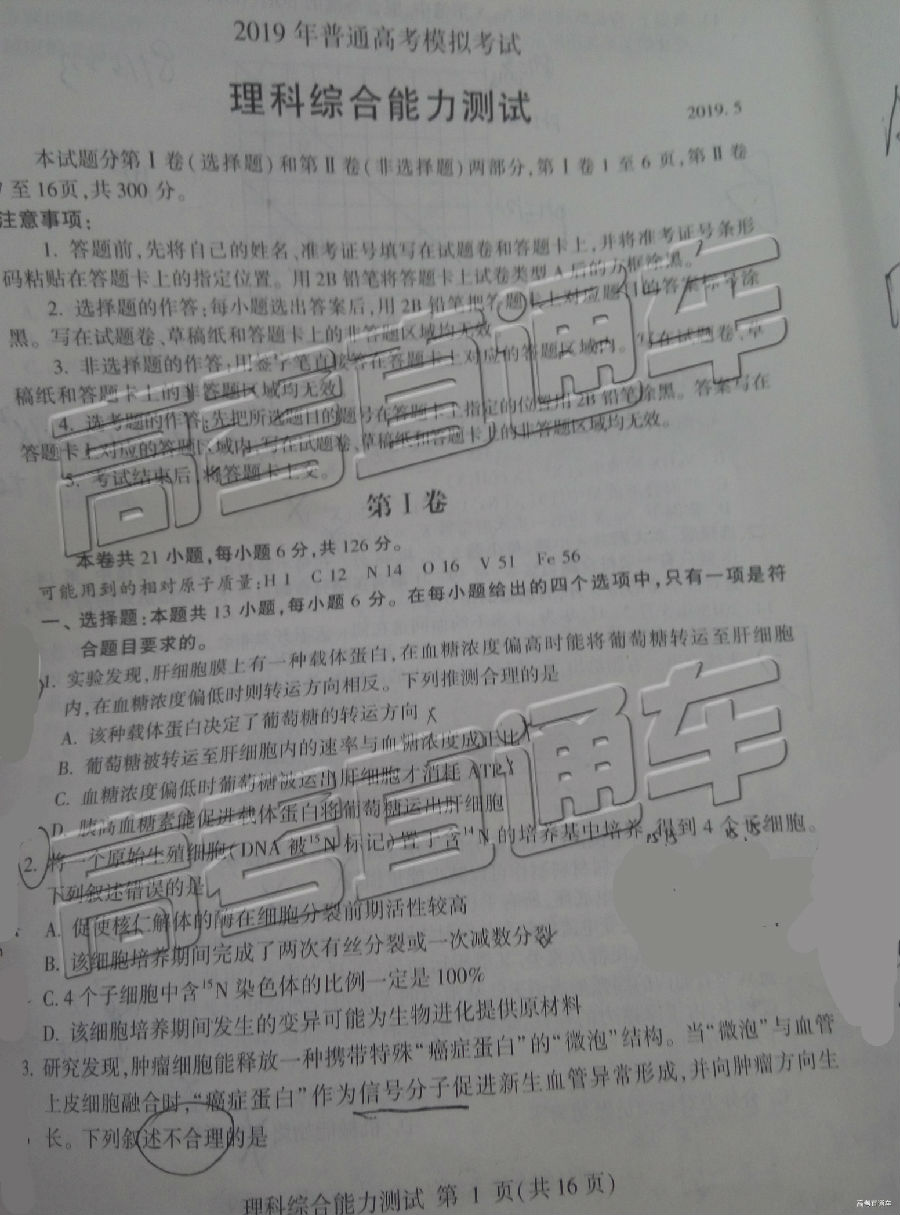 2019年普通高考模拟考试
理科综合能力测试
2019.5
本试题分第Ⅰ卷(选择题)和第Ⅱ卷(非选择题)两部分,第Ⅰ卷1至6页,第Ⅱ卷
7至16页,共300分。
注意事项:
1. 答题前,先将自己的姓名、准考证号填写在试题卷和答题卡上,并将准考证号条形
码粘贴在答题卡上的指定位置。用2B铅笔将答题卡上试卷类型A后的方框涂黑。
2. 选择题的作答:每小题选出答案后,用2B铅笔把答题卡上对应题目的答案标号涂
黑。写在试题卷、草稿纸和答题卡上的非答题区域均无效
3. 非选择题的作答:用签字笔直接答在答题卡上对应的答题区域内。写在试题卷、草
稿纸和答题卡上的非答题区域均无效
4. 选考题的作答:先把所选题目的题号在答题卡上指定的位置用2B铅笔涂黑。答案写在
答题卡上对应的答题区域内,写在试题卷、草稿纸和答题卡上的非答题区域均无效。
5. 考试结束后,将答题卡上交。
第Ⅰ卷
本卷共21小题,每小题6分,共126分。
可能用到的相对原子质量:H 1 C 12 N 14 O 16 V 51 Fe 56
一、选择题:本题共13小题,每小题6分。在每小题给出的四个选项中,只有一项是符
合题目要求的。
1. 实验发现,肝细胞膜上有一种载体蛋白,在血糖浓度偏高时能将葡萄糖转运至肝细胞
内,在血糖浓度偏低时则转运方向相反。下列推测合理的是
A. 该种载体蛋白决定了葡萄糖的转运方向
B. 葡萄糖被转运至肝细胞内的速率与血糖浓度成正比
C. 血糖浓度偏低时葡萄糖被运出肝细胞才消耗ATP
D. 胰高血糖素能促进载体蛋白将葡萄糖运出肝细胞
2. 将一个原始生殖细胞(DNA被¹⁵N标记)置于含¹⁴N的培养基中培养,得到4个子细胞。
下列叙述错误的是
A. 促使核仁解体的酶在细胞分裂前期活性较高
B. 该细胞培养期间完成了两次有丝分裂或一次减数分裂
C. 4个子细胞中含¹⁵N染色体的比例一定是100%
D. 该细胞培养期间发生的变异可能为生物进化提供原材料
3. 研究发现,肿瘤细胞能释放一种携带特殊“癌症蛋白”的“微泡”结构。当“微泡”与血管
上皮细胞融合时,“癌症蛋白”作为信号分子促进新生血管异常形成,并向肿瘤方向生
长。下列叙述不合理的是
理科综合能力测试 第 1 页(共16页)
高考直通车
高考直通车
高考直通车